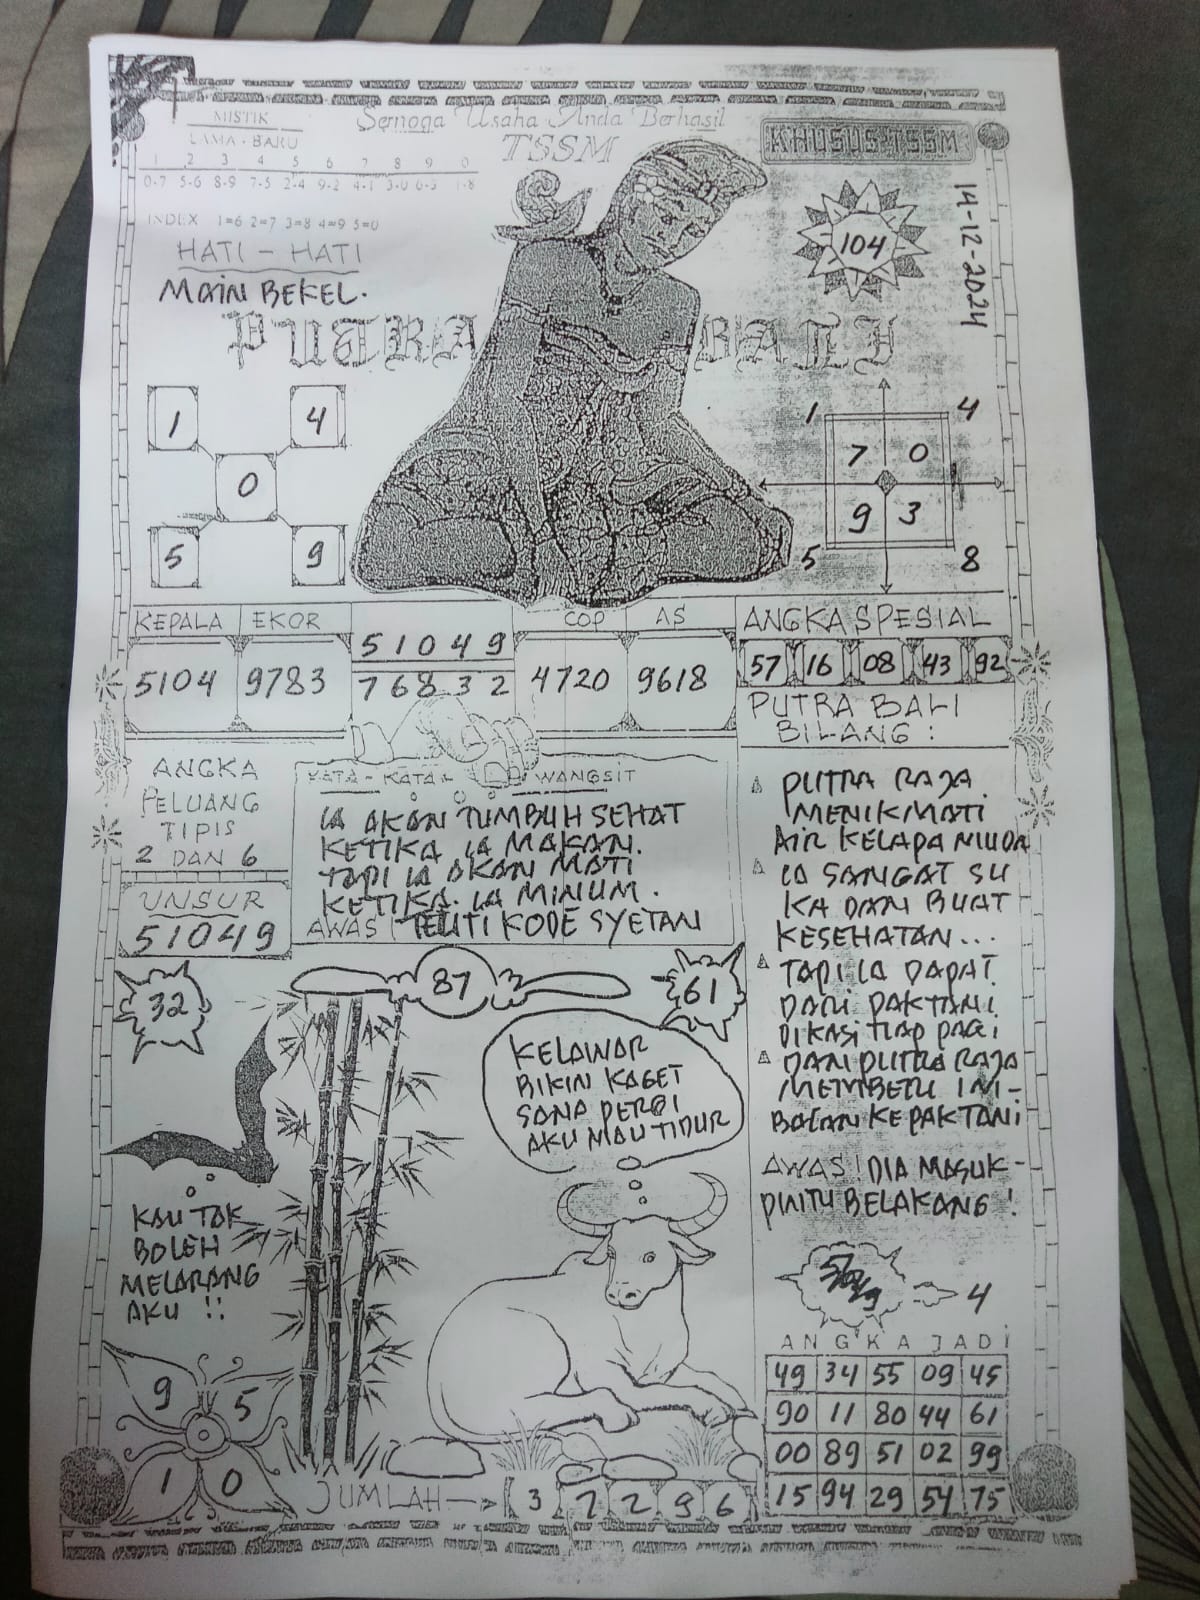 MISTIK
LAMA - BARU
1 2 3 4 5 6 7 8 9 0
0-7 5-6 8-9 7-5 2-4 9-2 4-1 3-0 6-3 1-8
INDEX 1=6 2=7 3=8 4=9 5=0
HATI - HATI
MAIN BEKEL.
Semoga Usaha Anda Berhasil
TSSM
KHUSUS TSSM
104
14-12-2024
PUTRA BALI
1 4
0
5 9
1 4
7 0
9 3
5 8
KEPALA EKOR
5104 9783
51049
76832
COP AS
4720 9618
ANGKA SPESIAL
57 16 08 43 92
PUTRA BALI
BILANG :
PUTRA RAJA
MENIKMATI
AIR KELAPA MUDA
IA SANGAT SU
KA DAN BUAT
KESEHATAN...
TAPI IA DAPAT
DARI PAKTANI
DIKASI TIAP PAGI
DAN PUTRA RAJA
MEMBERI IM-
BALAN KEPAKTANI
AWAS! DIA MASUK-
PINTU BELAKANG!
ANGKA
PELUANG
TIPIS
2 DAN 6
UNSUR
51049
KATA - KATA WANGSIT
IA AKAN TUMBUH SEHAT
KETIKA IA MAKAN.
TAPI IA AKAN MATI
KETIKA IA MINUM.
AWAS TELITI KODE SYETAN
32
87
61
KELAWAR
BIKIN KAGET
SANA PERGI
AKU MAU TIDUR
KAU TAK
BOLEH
MELARANG
AKU !!
9 5
1 0
JUMLAH
3 7 2 9 6
51049
4
ANGKA JADI
49 34 55 09 45
90 11 80 44 61
00 89 51 02 99
15 94 29 54 75